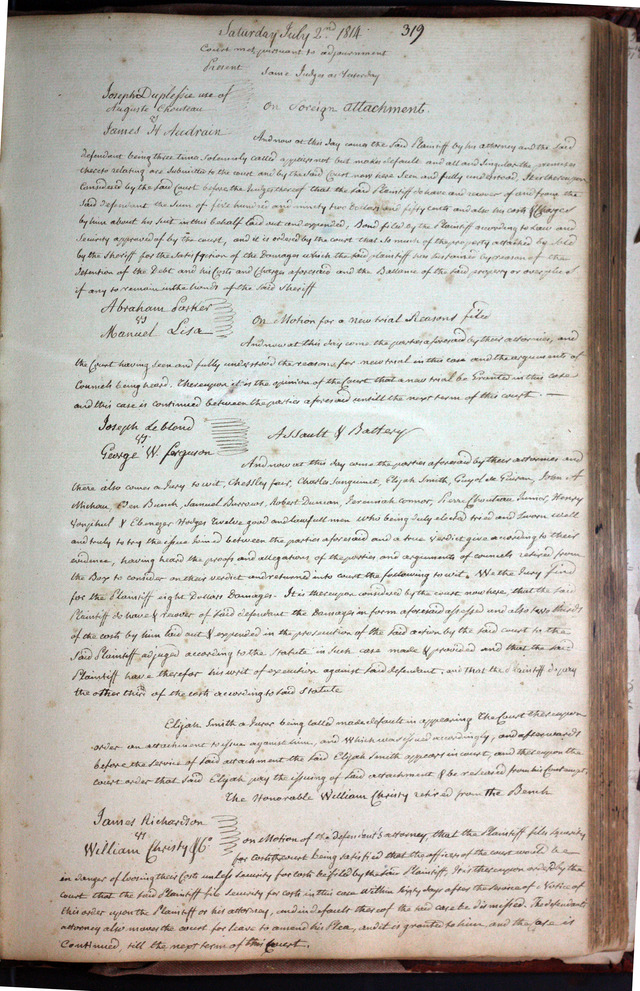 Saturday July 2nd 1814 319
Court met pursuant to adjournment
Present Same Judges as Yesterday
Joseph Duplessie use of
Auguste Chouteau
vs
James H Audrain
On Foreign attachment
And now at this day came the Said Plaintiff by his attorney and the Said
defendant being three times Solemnly called appears not but makes default and all and Singular the premises
thereto relating are Submitted to the court and by the Said Court now here Seen and fully understood It is thereupon
Considered by the Said Court before the Judges thereof that the Said Plaintiff do have and recover of and from the
Said defendant the Sum of five hundred and ninety two Dollars and fifty Cents and also his costs & charges
by him about his Suit in this behalf laid out and expended, Bond filed by the Plaintiff according to Law and
Security approved of by the court, and it is ordered by the court that So much of the property attached be Sold
by the Sheriff for the Satisfaction of the Damages which the Said plaintiff has Sustained by reason of the
detention of the Debt and his Costs and Charges aforesaid and the Ballance of the Said property or overplus if
if any to remain in the hands of the Said Sheriff
Abraham Parker
vs
Manuel Lisa
On Motion for a new trial Reasons filed
And now at this day come the parties aforesaid by their attornies, and
the Court having Seen and fully understood the reasons for new trial in this case and the arguments of
Councels being heard. thereupon it is the opinion of the Court that a new trial be Granted in this case
and this case is continued between the parties aforesaid untill the next term of this court. —
Joseph Leblond
vs
George W. Ferguson
Assault & Battery
And now at this day come the parties aforesaid by their attornies and
there also comes a Jury to wit, Charles Sanguinet, Elijah Smith, John A
Michau, Eden Bunch, Samuel Burrows, Robert Duncan, Jeremiah Connor, Pierre Chouteau Junior, Henry
& Ebenezer Hodges Twelve good and lawfull men who being duly elected tried and Sworn well
and truly to try the issue Joined between the parties aforesaid and a true Verdict give according to their
evidence, having heard the proofs and allegations of the parties and arguments of councels retired from
the Box to consider on their verdict and returned into court the following to wit. We the Jury find
for the Plaintiff eight Dollars Damages. It is thereupon considered by the court now here, that the Said
Plaintiff do have & recover of Said defendant the Damages in form aforesaid assessed and also two thirds
of the costs by him laid out & expended in the prosecution of the Said action by the Said court to the
Said Plaintiff adjuged according to the Statute in Such case made & provided and that the Said
Plaintiff have therefor his writ of execution against Said defendant, and that the Plaintiff do pay
the other third of the costs according to Said Statute
Elijah Smith a Juror being called made default in appearing The Court thereupon
order an attachment to issue against him, and Which was issued accordingly, and afterwards
before the service of Said attachment the Said Elijah Smith appears in court, and thereupon the
court order that Said Elijah pay the issuing of Said attachment & be released from his Contempt.
The Honorable William Christy retired from the Bench
James Richardson
vs
William Christy & Co
on Motion of the defendant's attorney, that the Plaintiff files Security
for costs the court being satisfied that the officers of the court would be
in danger of loosing their Costs unless Security for costs be filed by the Said Plaintiff. It is thereupon ordered by the
court that the Said Plaintiff file Security for costs in this case Within Sixty days after the Service of a Notice of
this order upon the Plaintiff or his attorney, and in default thereof the said case be dismissed. The defendants
attorney also moves the court for leave to amend his Plea, and it is granted to him and the Case is
Continued, till the next term of this Court.